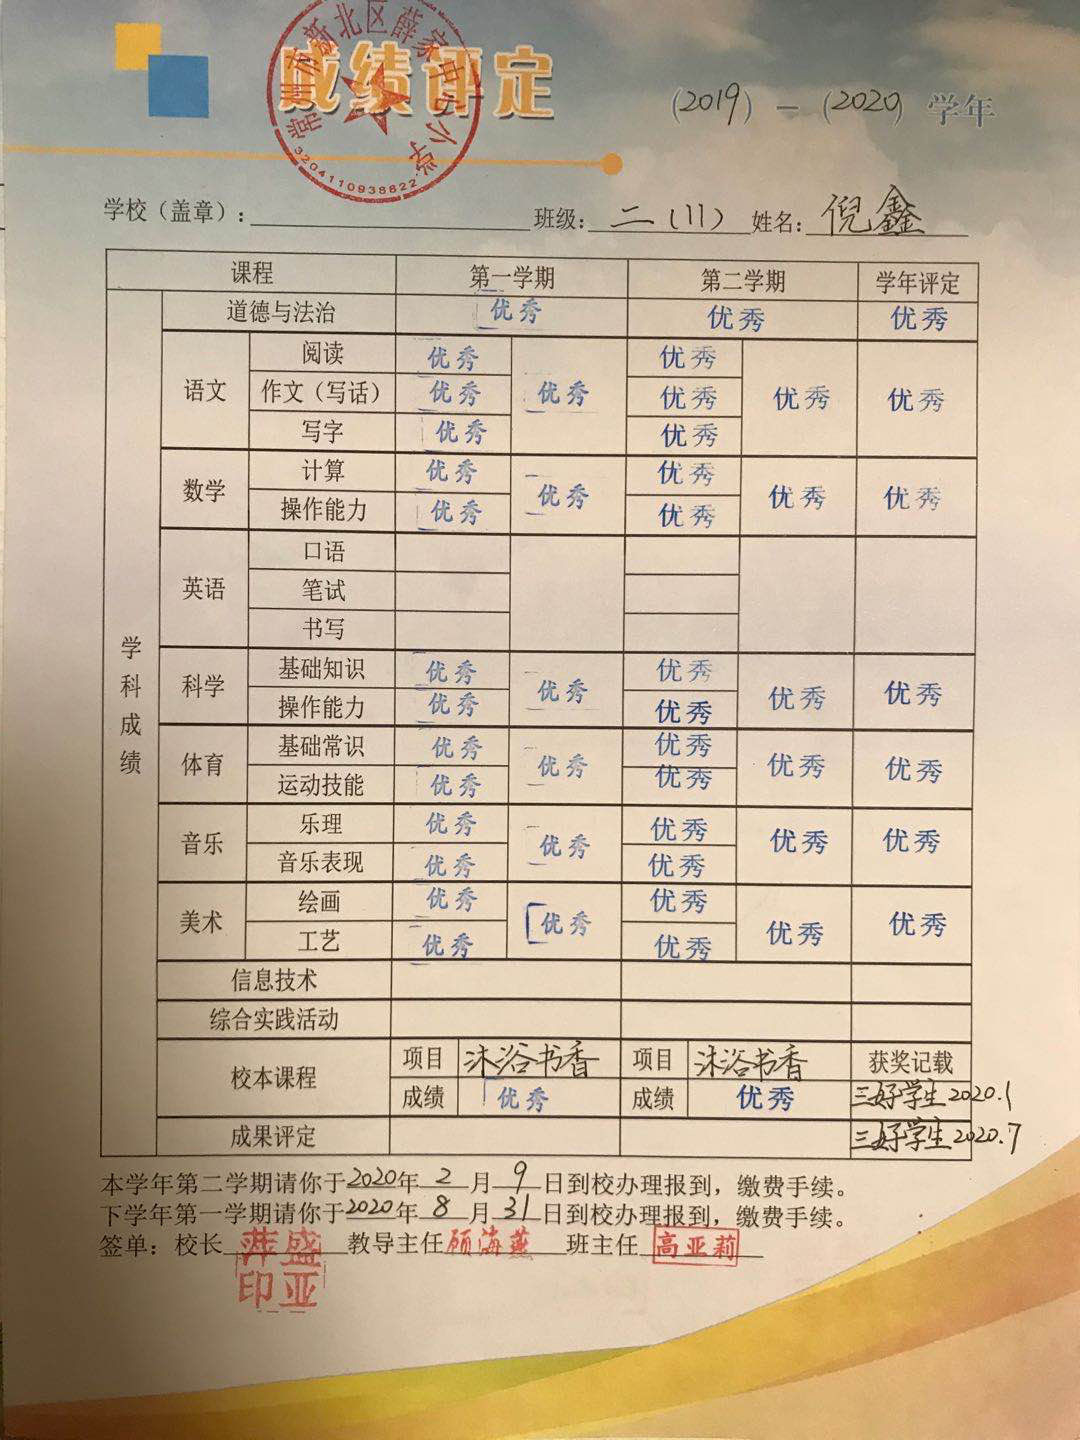 成绩评定
常州市新北区薛家中心小学
3204110938822
(2019) — (2020) 学年
学校（盖章）： 班级: 二(11) 姓名: 倪鑫
课程 第一学期 第二学期 学年评定
学科成绩
道德与法治 优秀 优秀 优秀
语文 阅读 优秀 优秀 优秀 优秀 优秀
作文（写话） 优秀 优秀
写字 优秀 优秀
数学 计算 优秀 优秀 优秀 优秀 优秀
操作能力 优秀 优秀
英语 口语
笔试
书写
科学 基础知识 优秀 优秀 优秀 优秀 优秀
操作能力 优秀 优秀
体育 基础常识 优秀 优秀 优秀 优秀 优秀
运动技能 优秀 优秀
音乐 乐理 优秀 优秀 优秀 优秀 优秀
音乐表现 优秀 优秀
美术 绘画 优秀 优秀 优秀 优秀 优秀
工艺 优秀 优秀
信息技术
综合实践活动
校本课程 项目 沐浴书香 项目 沐浴书香 获奖记载
成绩 优秀 成绩 优秀 三好学生2020.1
成果评定 三好学生2020.7
本学年第二学期请你于2020年2月9日到校办理报到，缴费手续。
下学年第一学期请你于2020年8月31日到校办理报到，缴费手续。
签单：校长 盛亚萍印 教导主任 顾海燕 班主任 高亚莉